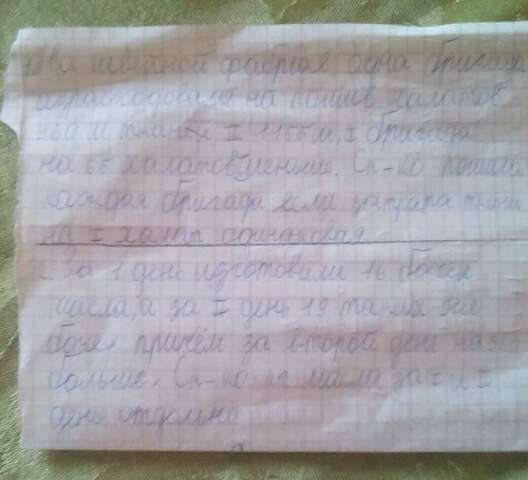 На швейной фабрике одна бригада
израсходовала на пошив халатов
960 м ткани, I бригада
на 65 халатов меньше. Ск-ко пошила
каждая бригада если затрата ткани
на I халат одинаковая
2. За 1 день изготовили 16 бочек
масла, а за II день 19 таких же
бочек причём за второй день на
больше. Ск-ко кг масла за I и II
день отдельно